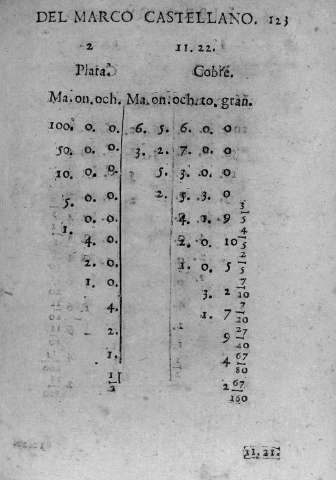 DEL MARCO CASTELLANO. 123
2 11.22.
Plata. Cobre.
Ma.on.och. Ma.on.och.to.gran.
100. 0. 0. 6. 5. 6. 0. 0
50. 0. 0. 3. 2. 7. 0. 0
10. 0. 0. 5. 3. 0. 0
5. 0. 0. 2. 5. 3. 0
1. 0. 0. 4. 1. 9 3/5
4. 0. 2. 0. 10 4/5
2. 0. 1. 0. 5 2/5
1. 0. 3. 2 7/10
4. 1. 7 7/20
2. 9 27/40
1. 4 67/80
1/2 2 67/160
11.21.